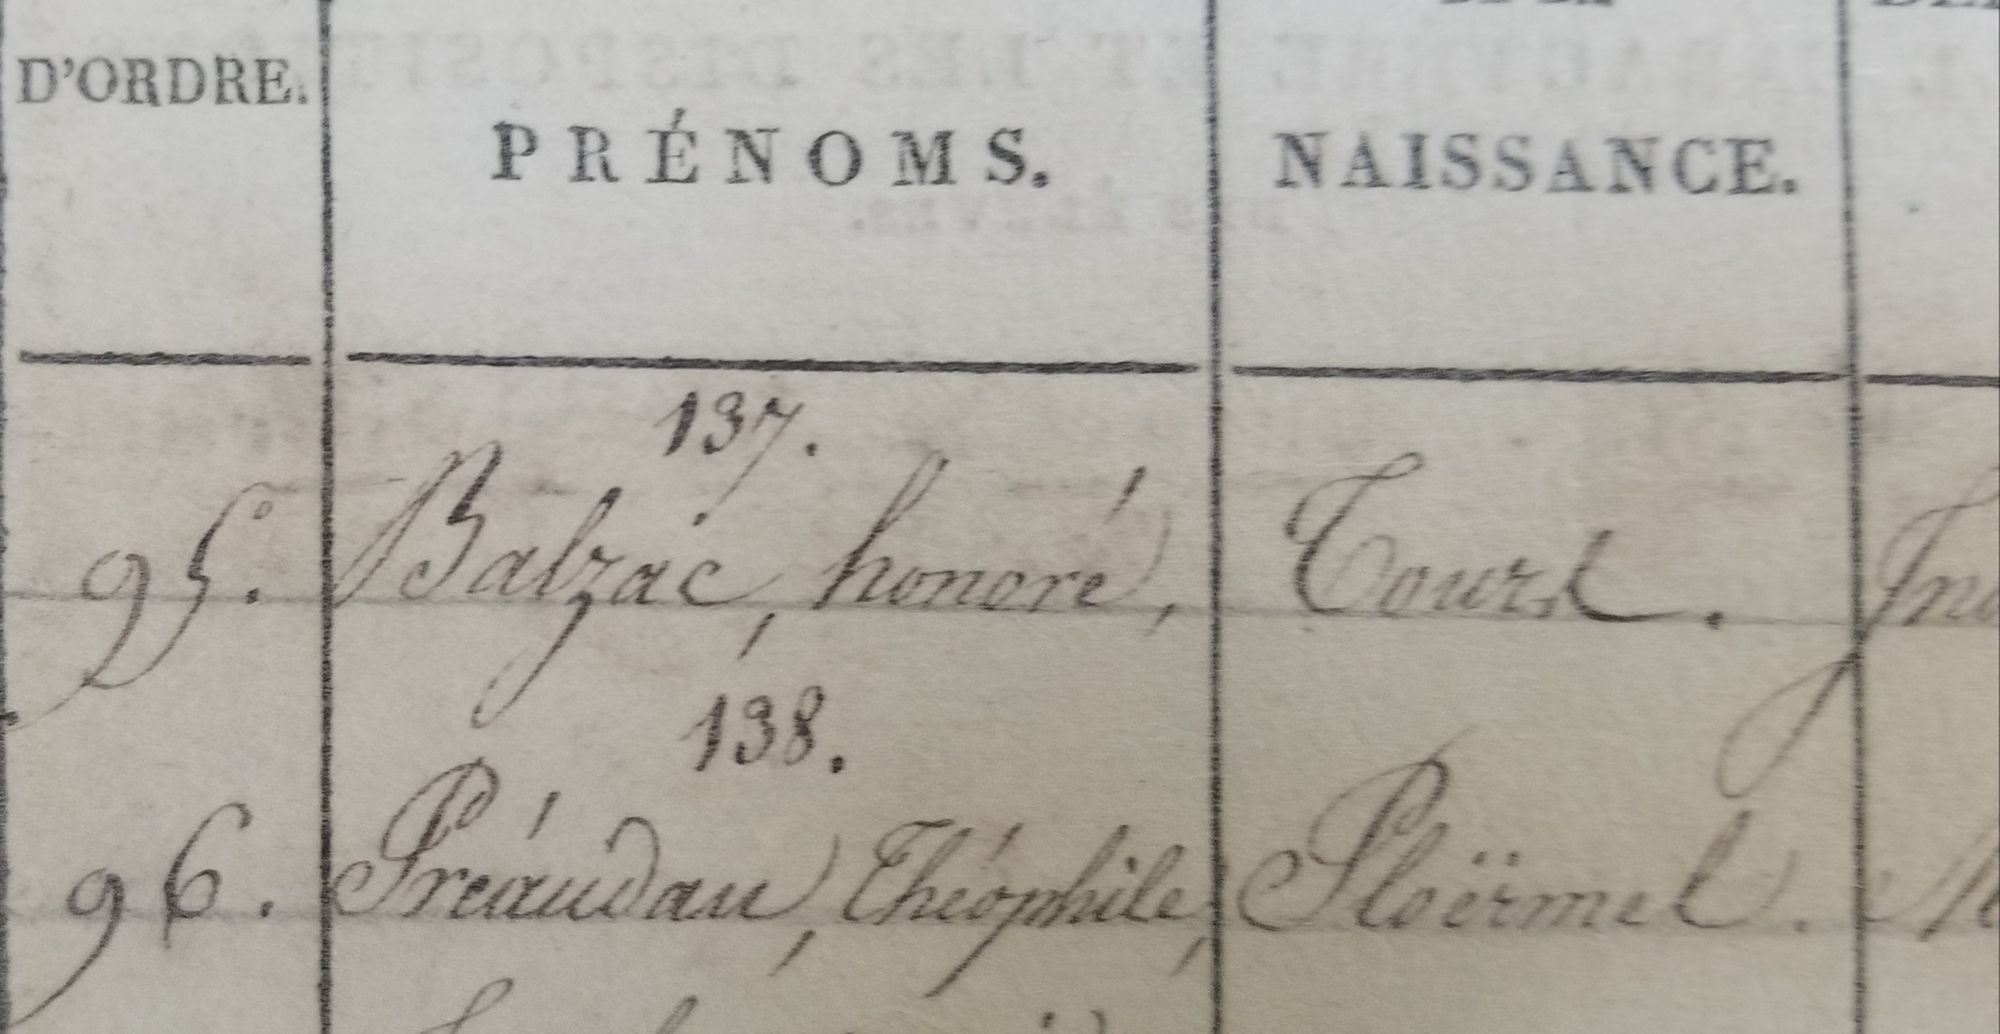 D'ORDRE.
PRÉNOMS.
NAISSANCE.
137.
95. Balzac, honoré, Tours.
138.
96. Préaudau, Théophile, Ploërmel.